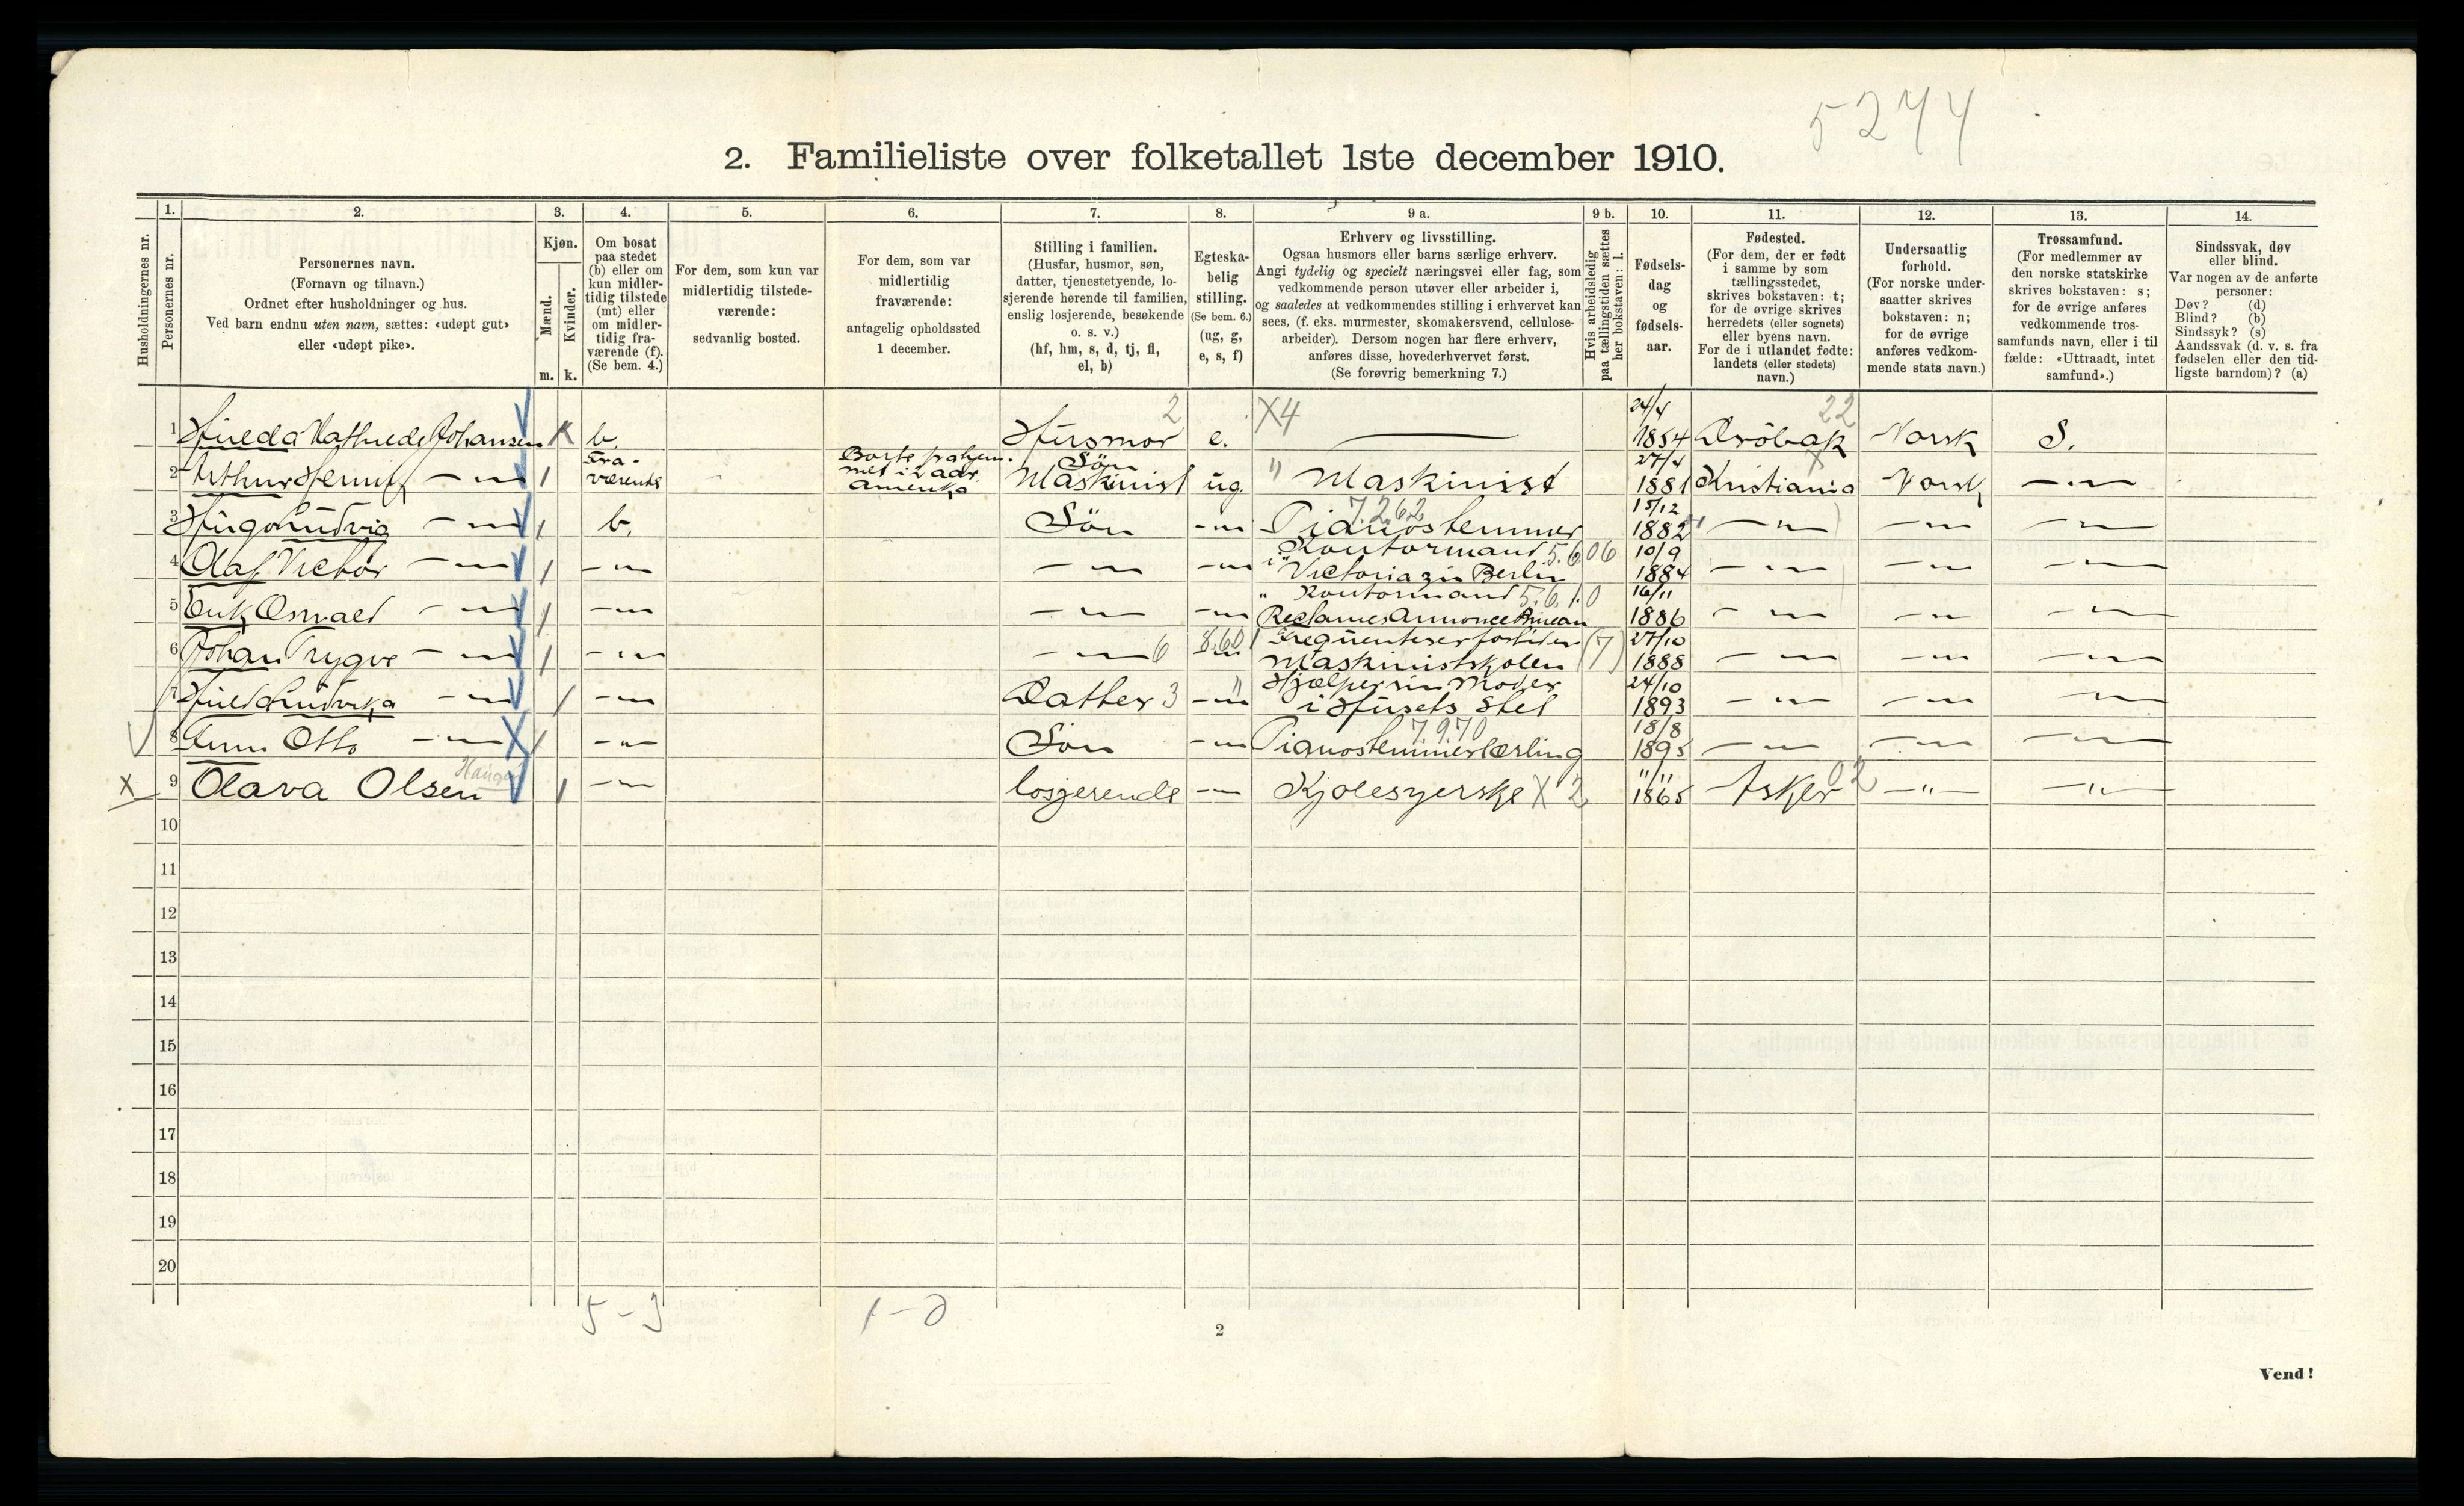 5244
2. Familieliste over folketallet 1ste december 1910.
Husholdningernes nr.
1.
Personernes nr.
2.
Personernes navn.
(Fornavn og tilnavn.)
Ordnet efter husholdninger og hus.
Ved barn endnu uten navn, sættes: «udøpt gut»
eller «udøpt pike».
3.
Kjøn.
Mænd.
Kvinder.
m. k.
4.
Om bosat
paa stedet
(b) eller om
kun midler-
tidig tilstede
(mt) eller
om midler-
tidig fra-
værende (f).
(Se bem. 4.)
5.
For dem, som kun var
midlertidig tilstede-
værende:
sedvanlig bosted.
6.
For dem, som var
midlertidig
fraværende:
antagelig opholdssted
1 december.
7.
Stilling i familien.
(Husfar, husmor, søn,
datter, tjenestetyende, lo-
sjerende hørende til familien,
enslig losjerende, besøkende
o. s. v.)
(hf, hm, s, d, tj, fl,
el, b)
8.
Egteska-
belig
stilling.
(Se bem. 6.)
(ug, g,
e, s, f)
9 a.
Erhverv og livsstilling.
Ogsaa husmors eller barns særlige erhverv.
Angi tydelig og specielt næringsvei eller fag, som
vedkommende person utøver eller arbeider i,
og saaledes at vedkommendes stilling i erhvervet kan
sees, (f. eks. murmester, skomakersvend, cellulose-
arbeider). Dersom nogen har flere erhverv,
anføres disse, hovederhvervet først.
(Se forøvrig bemerkning 7.)
9 b.
Hvis arbeidsledig
paa tællingstiden sættes
her bokstaven: l.
10.
Fødsels-
dag
og
fødsels-
aar.
11.
Fødested.
(For dem, der er født
i samme by som
tællingsstedet,
skrives bokstaven: t;
for de øvrige skrives
herredets (eller sognets)
eller byens navn.
For de i utlandet fødte:
landets (eller stedets)
navn.)
12.
Undersaatlig
forhold.
(For norske under-
saatter skrives
bokstaven: n;
for de øvrige
anføres vedkom-
mende stats navn.)
13.
Trossamfund.
(For medlemmer av
den norske statskirke
skrives bokstaven: s;
for de øvrige anføres
vedkommende tros-
samfunds navn, eller i til
fælde: «Uttraadt, intet
samfund».)
14.
Sindssvak, døv
eller blind.
Var nogen av de anførte
personer:
Døv? (d)
Blind? (b)
Sindssyk? (s)
Aandssvak (d. v. s. fra
fødselen eller den tid-
ligste barndom)? (a)
1 Hulda Mathilde Johansen K b. Husmor 2 e. X4 — 24/4 1854 Drøbak 22 Norsk S.
2 Arthur Henrik — " — 1 Fra-værende Borte fra hjemmet i 2 aar. Amerika Søn Maskinist ug. " Maskinist 27/4 1881 Kristiania X Norsk — " —
3 Hugo Ludvig — " — 1 b. Søn — " — 7.262 Pianostemmer 15/12 1882 — " — — " — — " —
4 Olaf Victor — " — 1 — " — — " — — " — Kontormand 5.606 i Victoria zu Berlin 10/9 1884 — " — — " — — " —
5 Erik Osvald — " — 1 — " — — " — — " — " Kontormand 5.6.10 Reclame Annonce Bureau 16/11 1886 — " — — " — — " —
6 Johan Trygve — " — 1 — " — — " — 6 8.601 Frequenterer for tiden Maskinistskolen (7) 27/10 1888 — " — — " — — " —
7 Hulda Ludvika — " — 1 — " — Datter 3 — " — Hjælper sin Moder i Husets Stel 24/10 1893 — " — — " — — " —
8 Finn Otto — " — X 1 — " — Søn — " — 7.970 Pianostemmerlærling 18/8 1895 — " — — " — — " —
X 9 Olava Olsen Haugen 1 — " — losjerende — " — Kjolesyerske X 2 11/11 1865 Asker 02 — " — — " —
10
11
12
13
14
15
16
17
18
19
20
5 - 3
1 - 0
2
Vend!